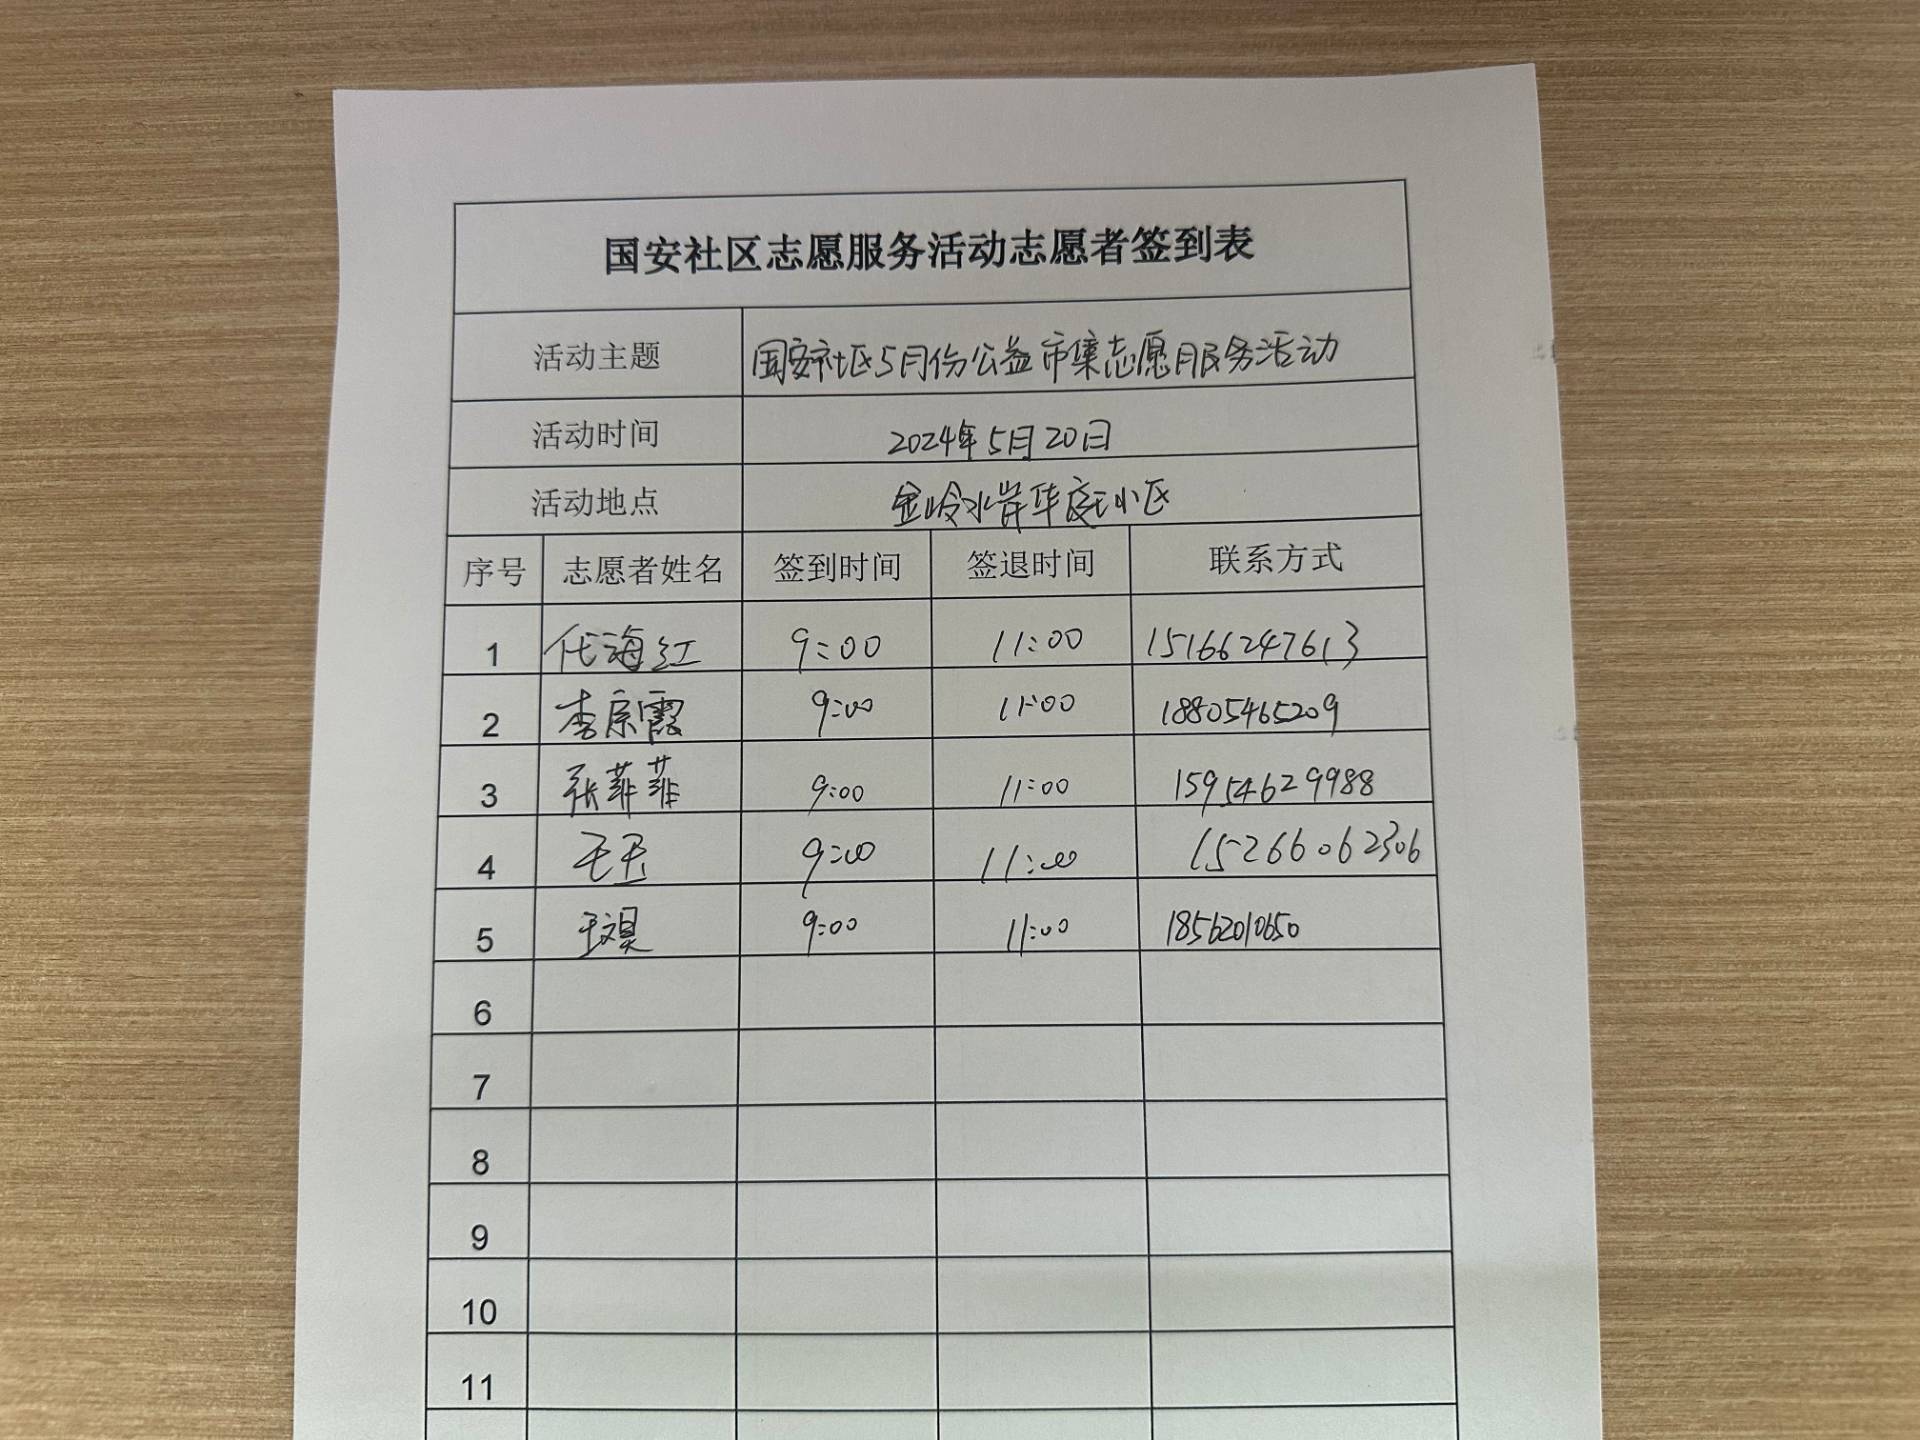 国安社区志愿服务活动志愿者签到表
活动主题 国安社区5月份公益市集志愿服务活动
活动时间 2024年5月20日
活动地点 金岭水岸华庭小区
序号 志愿者姓名 签到时间 签退时间 联系方式
1 代海红 9:00 11:00 15166247613
2 李宗霞 9:00 11:00 18805465209
3 张菲菲 9:00 11:00 15954629988
4 王玉 9:00 11:00 15266062306
5 9:00 11:00 18562010650
6
7
8
9
10
11